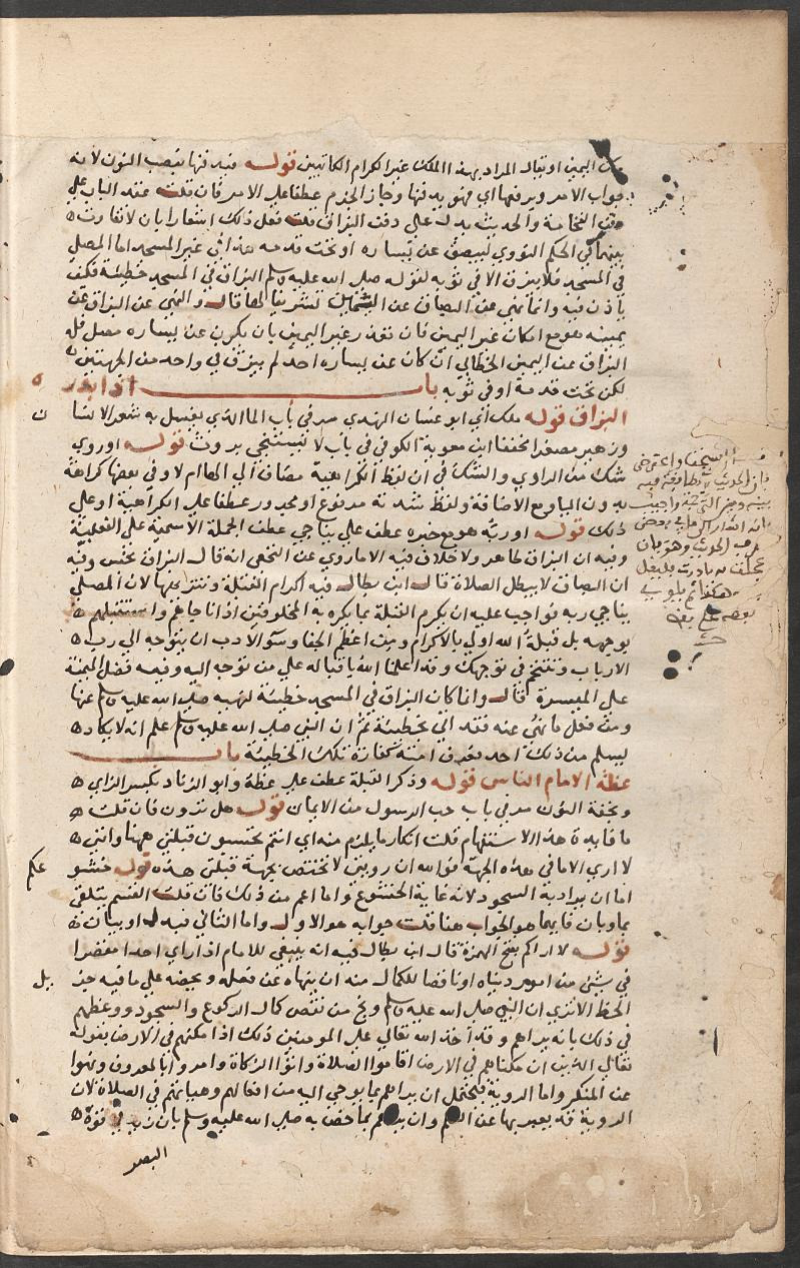 ملك اليمين او يقال المراد بهذا الملك غير الكرام الكاتبين قوله فيدفنها بنصب النون لانه
جواب الامر وبرفعها اي فهو يدفنها وجاز الجزم عطفا على الامر فان قلت عقد الباب على
دفن النخامة والحديث يدل على دفن البزاق قلت فعل ذلك اشعارا بان لا تفاوت
بينهما في الحكم النووي ليبصق عن يساره او تحت قدمه هذا في غير المسجد اما المصلي
في المسجد فلا يبزق الا في ثوبه لقوله صلى الله عليه وسلم البزاق في المسجد خطيئة فكيف
ياذن فيه وانما نهي عن البصاق عن اليمين تشريفا لها قال والنهي عن البزاق عن
يمينه هو مع امكان غير اليمين فان تعذر غير اليمين بان يكون عن يساره مصل فله
البزاق عن اليمين الخطابي ان كان عن يساره احد لم يبزق في واحد من الجهتين
لكن تحت قدمه او في ثوبه باب اذا بدره
البزاق قوله ملك اي ابو غسان النهدي مر في باب الماء الذي يغسل به شعر الانسان
وزهير مصغرا مخففا ابن معوية الكوفي في باب لا يستنجي بروث قوله او روي
شك من الراوي والشك في ان لفظ الكراهية مضاف الى الها ام لا وفي بعضها كراهة
بدون اليا ومع الاضافة ولفظ شدته مرفوع او مجرور عطفا على الكراهية او على
ذلك قوله او ربه هو مع خبره عطف على يناجي عطف الجملة الاسمية على الفعلية
وفيه ان البزاق طاهر ولا خلاف فيه الا ما روي عن النخعي انه قال البزاق نجس وفيه
ان البصاق لا يبطل الصلاة قال ابن بطال فيه اكرام القبلة وتنزيهها لان المصلي
يناجي ربه فواجب عليه ان يكرم القبلة بما يكرم به المخلوقين اذا ناجاهم واستقبلهم
بوجهه بل قبلة الله اولى بالاكرام ومن اعظم الجفا وسوء الادب ان يتوجه الى رب
الارباب وتتنخم في توجهك وقد اعلمنا الله باقباله على من توجه اليه وفيه فضل الميمنة
على الميسرة قال وانما كان البزاق في المسجد خطيئة لنهيه صلى الله عليه وسلم عنها
ومن فعل ما نهي عنه فقد اتى بخطيئة ثم ان النبي صلى الله عليه وسلم علم انه لا يكاد
يسلم من ذلك احد فعرف امته كفارة تلك الخطيئة باب
عظة الامام الناس قوله وذكر القبلة عطف على عظة وابو الزناد بكسر الزاي
وبخفة النون مر في باب حب الرسول من الايمان قوله هل ترون فان قلت
ما فايدة هذا الاستفهام قلت انكار ما يلزم منه اي انتم تحسبون قبلتي ههنا وانني
لا ارى الا ما في هذه الجهة فوالله ان رويتي لا تختص بجهة قبلتي هذه قوله خشوعكم
اما ان يراد به السجود لانه غاية الخشوع واما اعم من ذلك فان قلت القسم يتلقى
بما وبان فايهما هو الجواب هنا قلت جوابه هو الاول واما الثاني فبدل او بيان
قوله لا اراكم بفتح الهمزة قال ابن بطال فيه انه ينبغي للامام اذا راى احدا مقصرا
في شيئ من امور دينه او ناقصا للكمال منه ان ينهاه عن فعله ويحضه على ما فيه جزيل
الحظ الا ترى ان النبي صلى الله عليه وسلم وبخ من نقص كمال الركوع والسجود ووعظهم
في ذلك بانه يراهم وقد اخذ الله تعالى على المومنين ذلك اذا مكنهم في الارض بقوله
تعالى الذين ان مكناهم في الارض اقاموا الصلاة واتوا الزكاة وامروا بالمعروف ونهوا
عن المنكر واما الروية فيحتمل ان يراهم بما يوحي اليه من افعالهم وهياتهم في الصلاة لان
الروية قد يعبر بها عن العلم وان يراهم بما خص به صلى الله عليه وسلم بان زيد في قوة
البصر